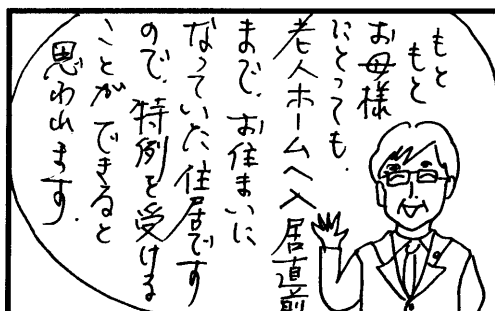 もともと
お母様
にとっても、
老人ホームへ入居直前
まで、お住まいに
なっていた住居です
ので、特例を受ける
ことができると
思われます。